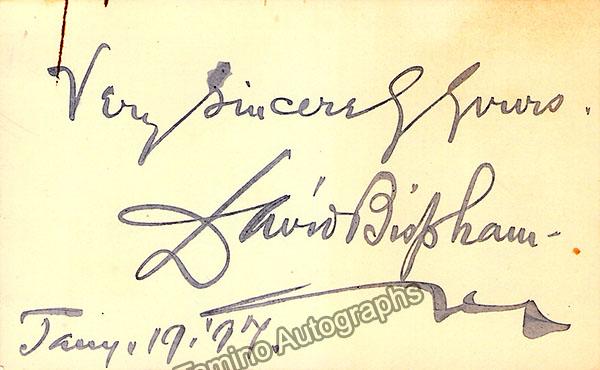 Very Sincerely Yours.
David Bispham-
Jany. 19. '97.
Tamino Autographs